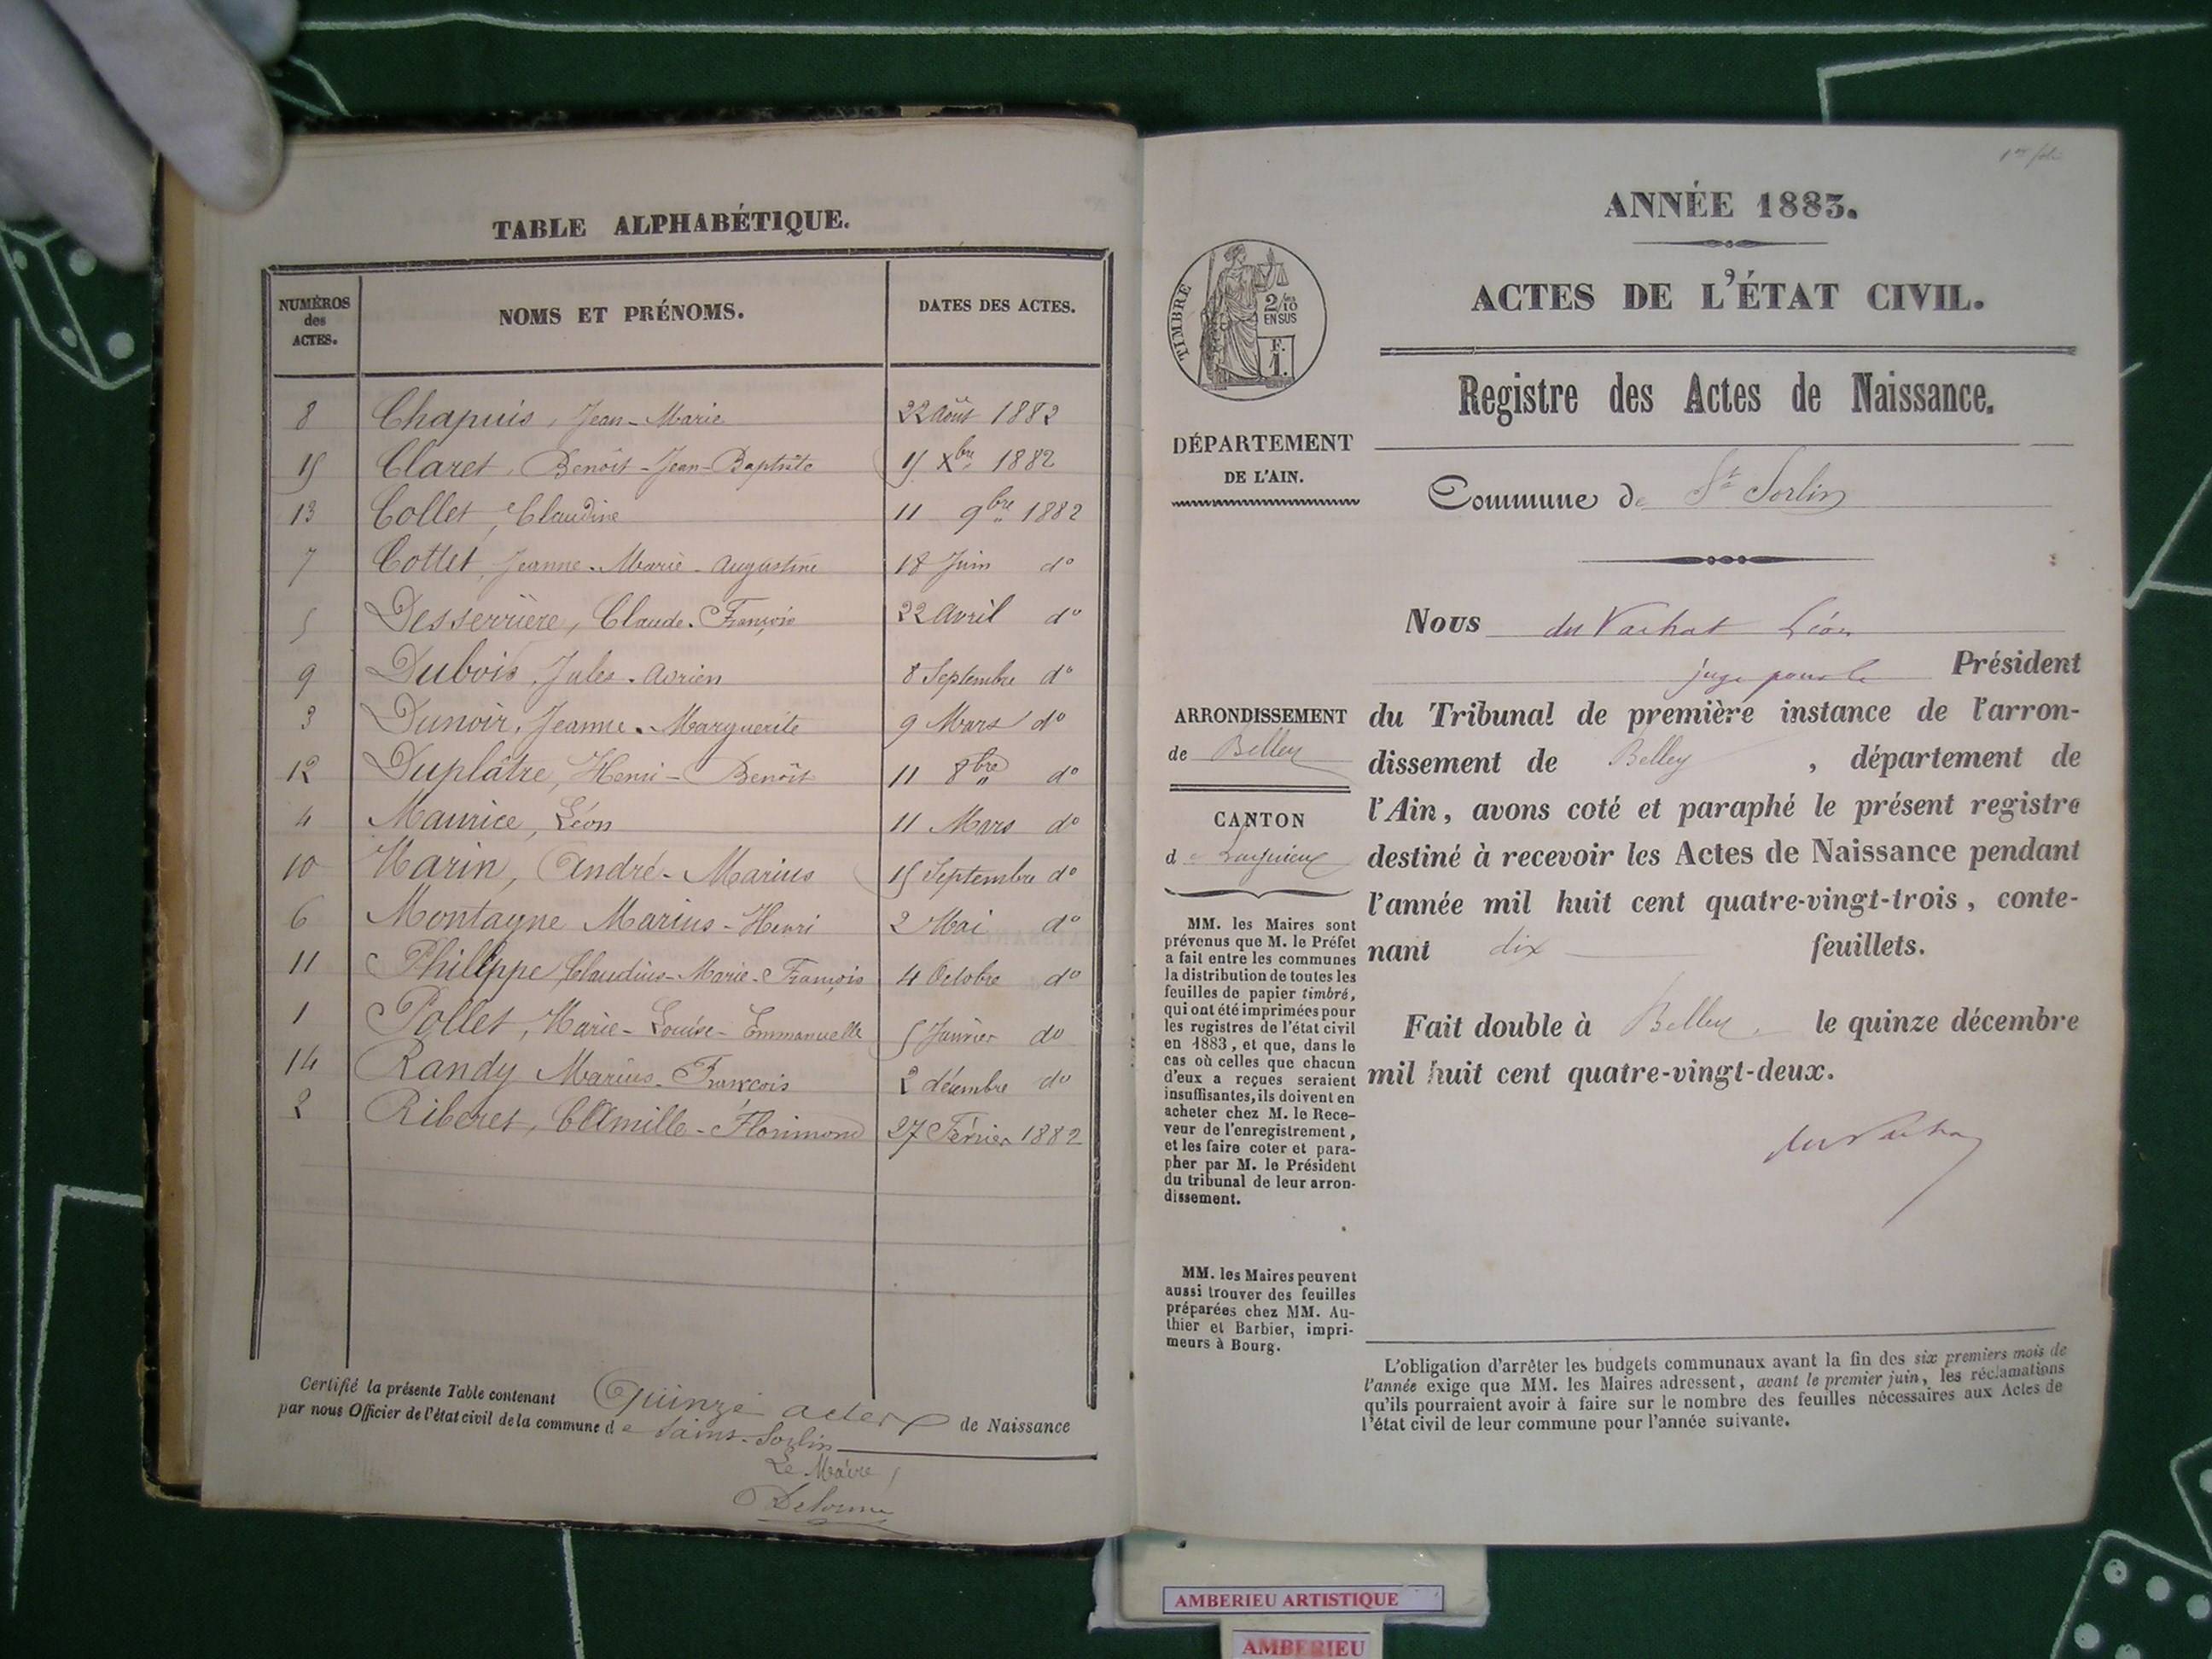 TABLE ALPHABÉTIQUE.
NUMÉROS
des
ACTES.
NOMS ET PRÉNOMS.
DATES DES ACTES.
8 Chapuis, Jean-Marie 22 Août 1882
15 Claret, Benoît-Jean-Baptiste 15 Xbre 1882
13 Collet, Claudine 11 9bre 1882
7 Cottet, Jeanne-Marie-Augustine 18 Juin do
5 Desserrière, Claude-François 22 avril do
9 Dubois, Jules-Adrien 8 Septembre do
3 Dunoir, Jeanne-Marguerite 9 Mars do
12 Duplâtre, Henri-Benoît 11 8bre do
4 Maurice, Léon 11 Mars do
10 Marin, André-Marius 15 Septembre do
6 Montagne Marius-Henri 2 Mai do
11 Philippe Claudius-Marie-François 4 Octobre do
1 Pollet, Marie-Louise-Emmanuelle 5 Janvier do
14 Randy Marius-François 2 décembre do
2 Riberet, Camille-Florimond 27 Février 1882
Certifié la présente Table contenant Quinze actes de Naissance
par nous Officier de l'état civil de la commune de Saint-Sorlin
Le Maire
Delorme
1er folio
ANNÉE 1883.
ACTES DE L'ÉTAT CIVIL.
TIMBRE
2/10
EN SUS
F.
1.
Registre des Actes de Naissance.
DÉPARTEMENT
DE L'AIN.
Commune de St Sorlin
Nous du Vachat Léon
juge pour le Président
du Tribunal de première instance de l'arron-
dissement de Belley, département de
l'Ain, avons coté et paraphé le présent registre
destiné à recevoir les Actes de Naissance pendant
l'année mil huit cent quatre-vingt-trois, conte-
nant dix feuillets.
Fait double à Belley, le quinze décembre
mil huit cent quatre-vingt-deux.
ARRONDISSEMENT
de Belley
CANTON
de Lagnieu
MM. les Maires sont
prévenus que M. le Préfet
a fait entre les communes
la distribution de toutes les
feuilles de papier timbré,
qui ont été imprimées pour
les registres de l'état civil
en 1883, et que, dans le
cas où celles que chacun
d'eux a reçues seraient
insuffisantes, ils doivent en
acheter chez M. le Rece-
veur de l'enregistrement,
et les faire coter et para-
pher par M. le Président
du tribunal de leur arron-
dissement.
MM. les Maires peuvent
aussi trouver des feuilles
préparées chez MM. Au-
thier et Barbier, impri-
meurs à Bourg.
L'obligation d'arrêter les budgets communaux avant la fin des six premiers mois de
l'année exige que MM. les Maires adressent, avant le premier juin, les réclamations
qu'ils pourraient avoir à faire sur le nombre des feuilles nécessaires aux Actes de
l'état civil de leur commune pour l'année suivante.
AMBERIEU ARTISTIQUE
AMBERIEU